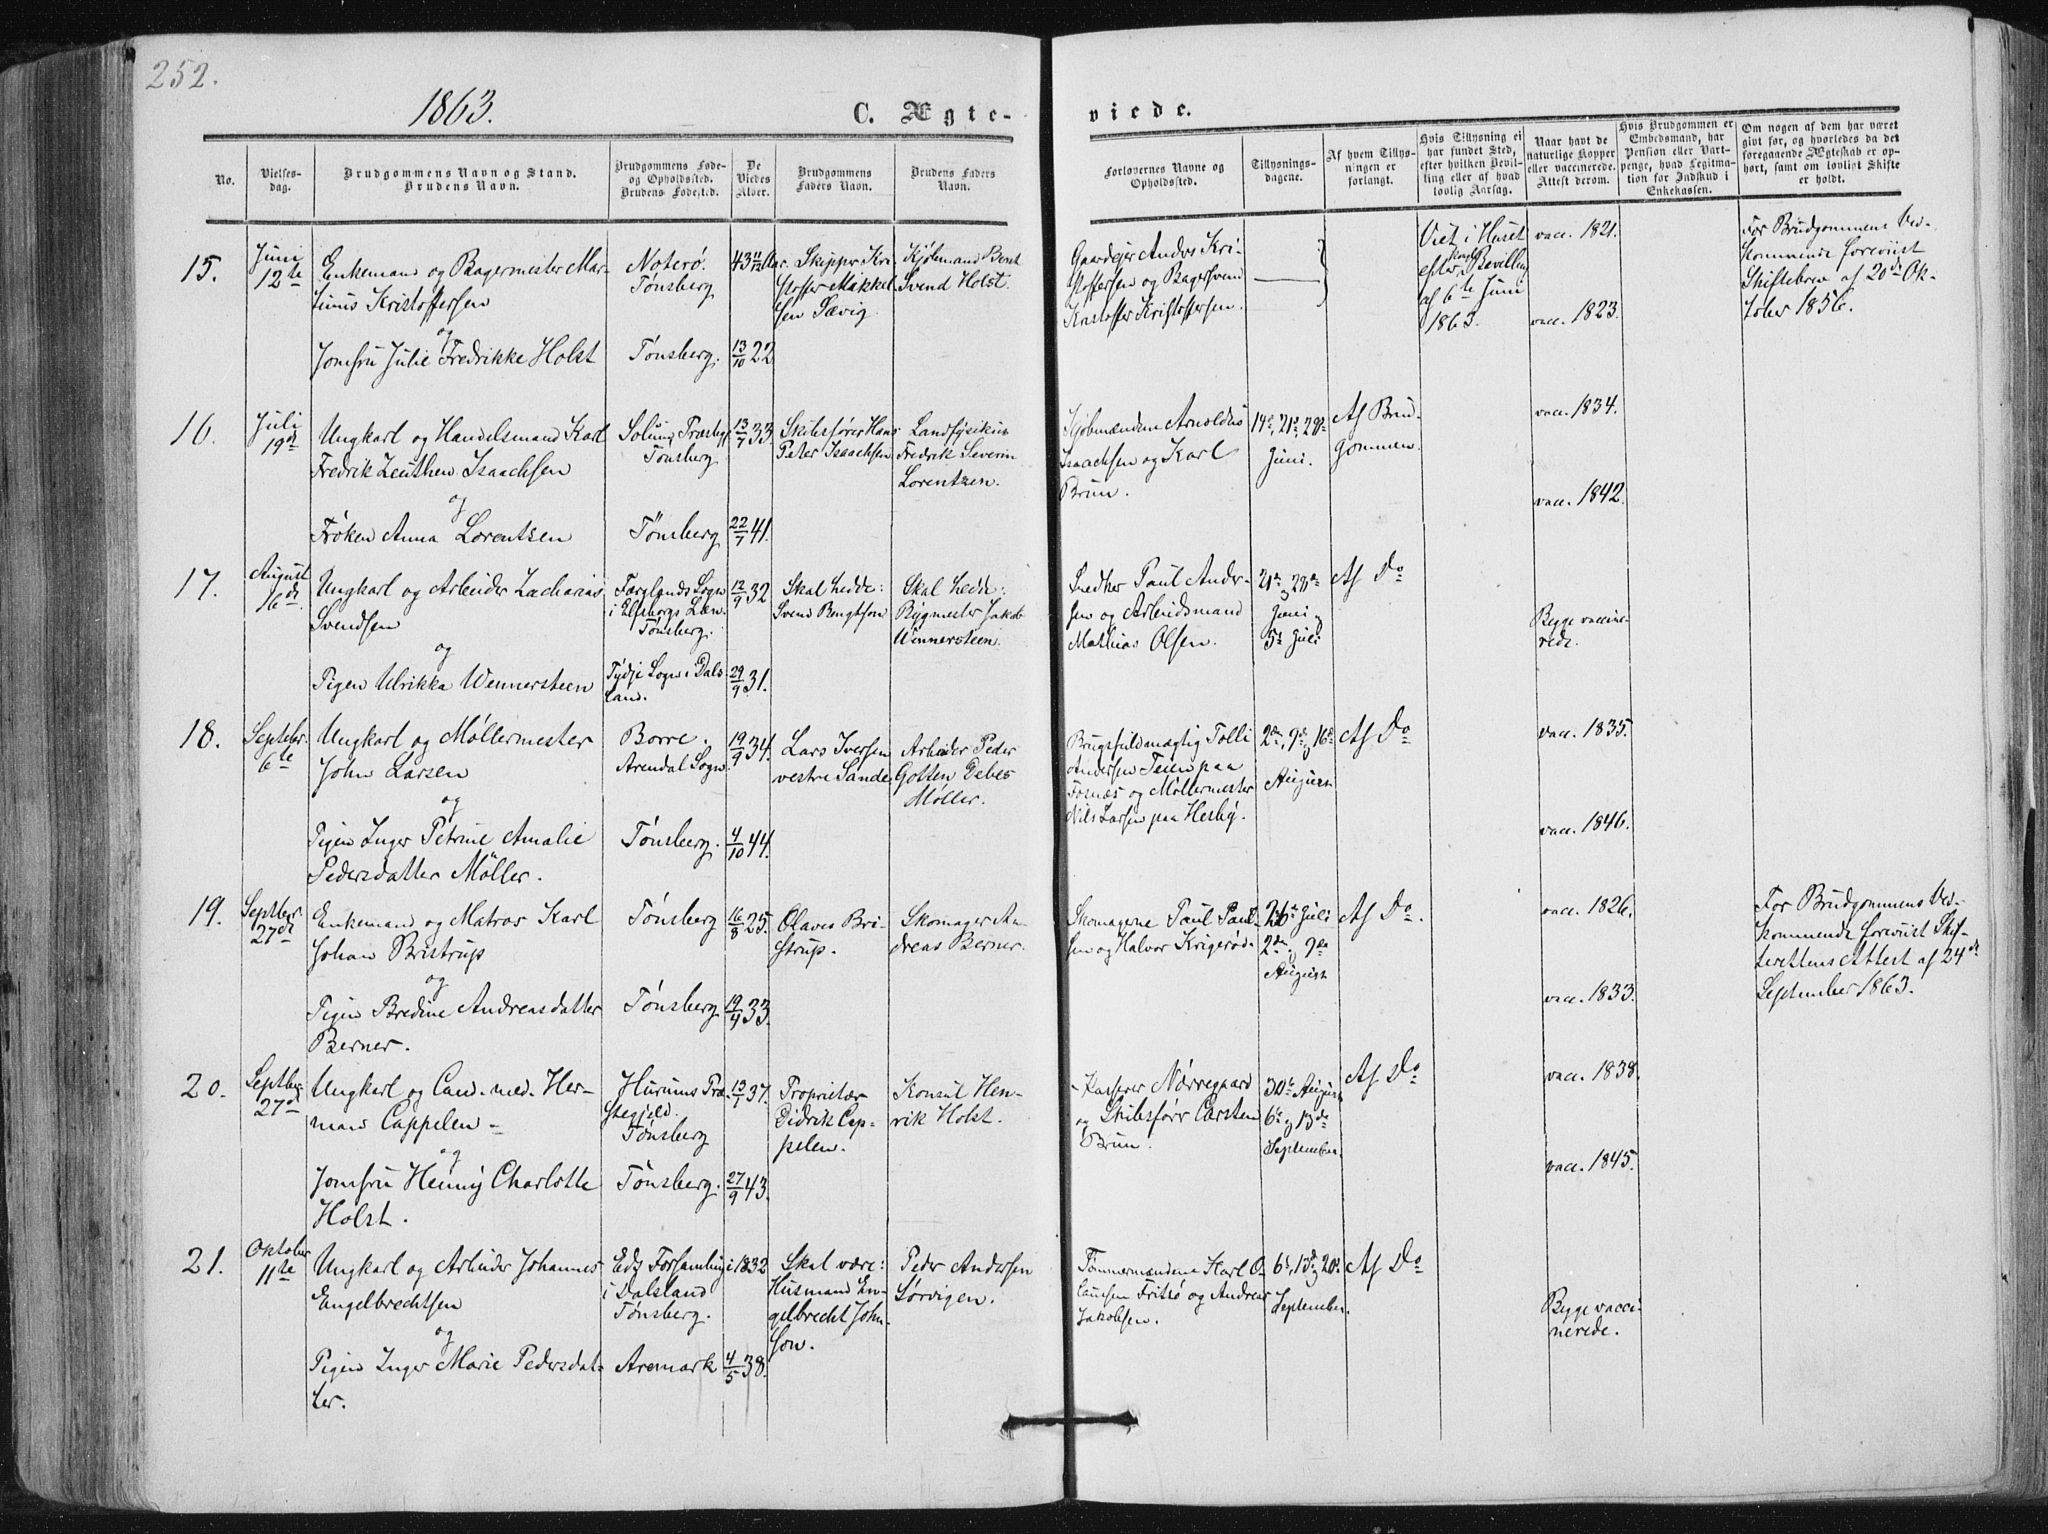 252.
1863.
C. Ægte-
viede.
No.
Vielses-
dag.
Brudgommens Navn og Stand.
Brudens Navn.
Brudgommens Føde-
og Opholdssted.
Brudens Fødested.
De
Viedes
Alder.
Brudgommens
Faders Navn.
Brudens Faders
Navn.
Forlovernes Navne og
Opholdssted.
Tillysnings-
dagene.
Af hvem Tillys-
ningen er
forlangt.
Hvis Tillysning ei
har fundet Sted,
efter hvilken Bevil-
ling eller af hvad
lovlig Aarsag.
Naar havt de
naturlige Kopper
eller vaccinerede.
Attest derom.
Hvis Brudgommen er
Embedsmand, har
Pension eller Vart-
penge, hvad Legitima-
tion for Indskud i
Enkekassen.
Om nogen af dem har været
givt før, og hvorledes da det
foregaaende Ægteskab er op-
hørt, samt om lovligt Skifte
er holdt.
15.
Juni
12te
Enkemand og Bagermester Mar-
tinus Kristoffersen
og
Jomfru Julie Fredrikke Holst
Noterø.
Tønsberg
Tønsberg.
43
13/10 22
Skipper Kri-
stoffer Mikkel-
sen Sævig.
Kjøbmand Bernt
Svend Holst.
Gaardejer Anders Kri-
stoffersen og Bagersvend
Kristoffer Kristoffersen.
Viet i Huset
efter Bevilling
af 6te Juni
1863.
vacc. 1821.
vacc. 1823.
For Brudgommens Ved-
kommende forevist
Skiftebrev af 20de Ok-
tober 1856.
16.
Juli
19de
Ungkarl og Handelsmand Karl
Fredrik Zeuthen Isaachsen
og
Frøken Anna Lorentzen
Solum Præstegj.
Tønsberg
Tønsberg
13/7 33
22/7 41.
Skibsfører Hans
Peter Isaachsen
Landfysikus
Fredrik Severin
Lorentzen.
Kjøbmændene Arnoldus
Isaachsen og Karl
Brun.
14de, 21de, 28de
Juni.
Af Brud-
gommen.
vacc. 1834.
vacc. 1842.
17.
August
16de
Ungkarl og Arbeider Zacharias
Svendsen
og
Pigen Ulrikka Wennersteen
Færglunds Sogn
i Elfsborgs Læn
Tønsberg.
Tydje Sogn i Dals-
land.
12/9 32
29/9 31.
Skal hedde:
Svend Bengtson
Skal hedde:
Bygmester Jakob
Wennersteen.
Snedker Paul Ander-
sen og Arbeidsmand
Mathias Olsen.
21de, 28de
Juni og
5te Juli
Af Do
Begge vaccine-
rede.
18.
Septbr.
6te
Ungkarl og Møllermester
John Larsen
og
Pigen Inger Petrine Amalie
Pedersdatter Møller.
Borre.
Arendal Sogn.
Tønsberg.
19/9 34.
4/10 44.
Lars Iversen
vestre Sande
Arbeider Peder
Møller.
Brugsfuldmægtig Tolli
Andersen Teien paa
Fossnæs og Møllermester
Nils Larsen paa Hesby.
2den, 9de og 16de
August
Af Do
vacc. 1835.
vacc. 1846.
19.
Septbr.
27de
Enkemand og Matros Karl
Johan Bristrup
og
Pigen Bredine Andreasdatter
Berner.
Tønsberg
Tønsberg
16/8 25.
19/4 33.
Olaves Bri-
strup.
Skomager An-
dreas Berner.
Skomagerne Paul Paul-
sen og Halvor Krigerød.
26de Juli
2den og 9de
August
Af Do.
vacc. 1826.
vacc. 1833.
For Brudgommens Ved-
kommende forevist Skif-
terettens Attest af 24de
September 1863.
20.
Septbr.
27de
Ungkarl og Cand. med. Her-
man Cappelen -
og
Jomfru Henny Charlotte
Holst.
Hurums Præ-
stegjeld.
Tønsberg
Tønsberg.
13/1 37.
27/9 43.
Proprietær
Didrik Cap-
pelen.
Konsul Hen-
rik Holst.
Kasserer Nørregaard
og Skibsfører Carsten
Brun.
30te August
6te og 13de
September.
Af Do
vacc. 1838.
vacc. 1845.
21.
Oktober
11te
Ungkarl og Arbeider Johannes
Engelbrechtsen
og
Pigen Inger Marie Pedersdat-
ter.
Eds Forsamling
i Dalsland
Tønsberg.
Aremark
1832
4/5 38.
Skal være:
Husmand En-
gelbrecht John-
son.
Peder Andersen
Sørvigen.
Tømmermændene Karl O.
Clausen Fritsø og Andreas
Jakobsen.
6te, 13de og 20de
September.
Af Do
Begge vacci-
nerede.